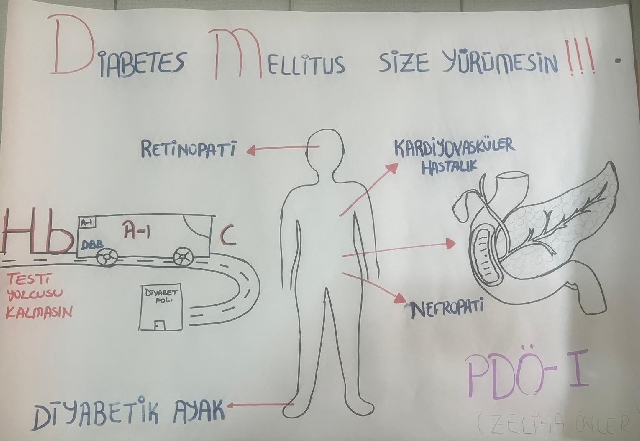 DİABETES MELLİTUS SİZE YÜRÜMESİN!!!
RETİNOPATİ
KARDİYOVASKÜLER
HASTALIK
Hb A-1 C
A-1
DBB
TESTİ
YOLCUSU
KALMASIN
DİYABET
POLİ
NEFROPATİ
DİYABETİK AYAK
PDÖ-I